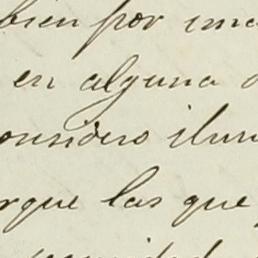 bien por una
en alguna
considero ilu
rque las que